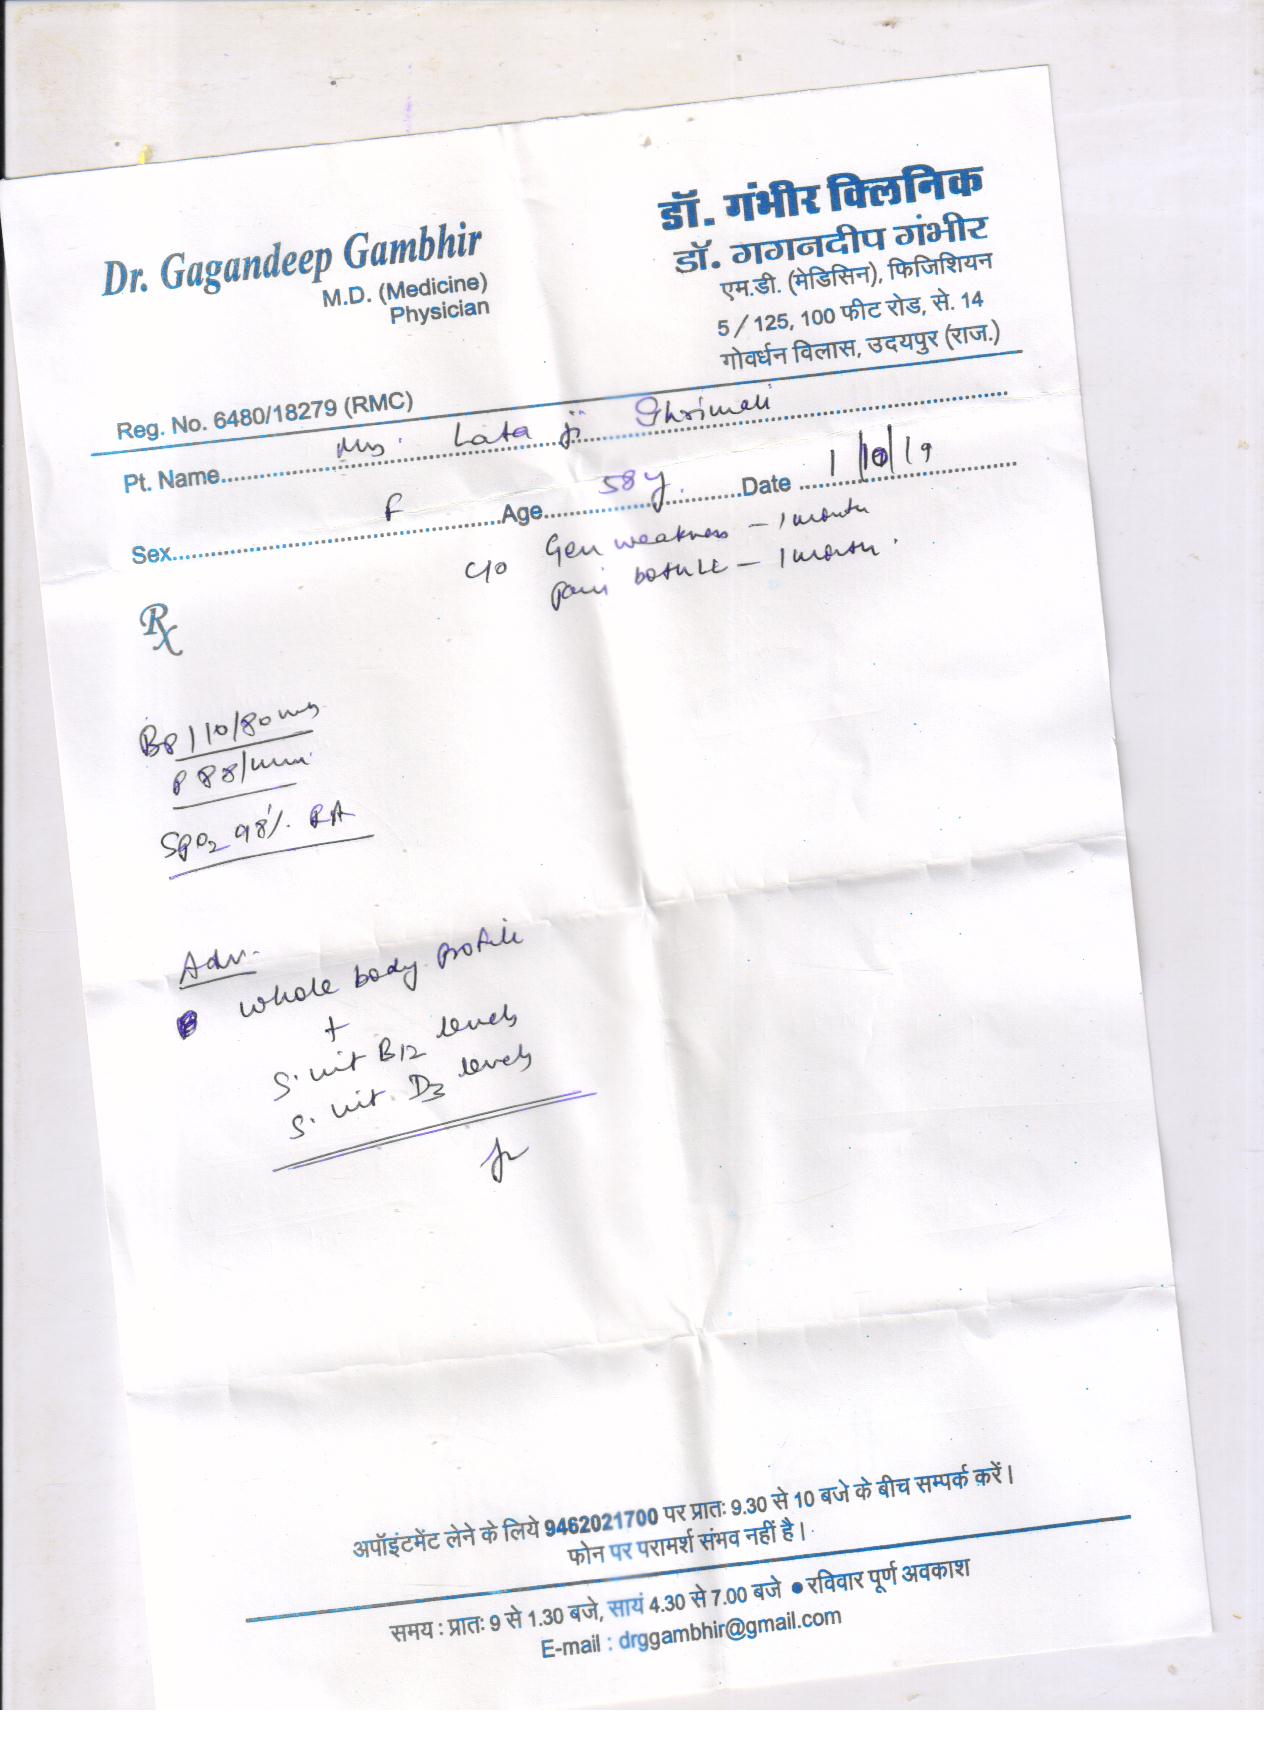 Dr. Gagandeep Gambhir
M.D. (Medicine)
Physician
Reg. No. 6480/18279 (RMC)
डॉ. गंभीर क्लिनिक
डॉ. गगनदीप गंभीर
एम.डी. (मेडिसिन), फिजिशियन
5 / 125, 100 फीट रोड, से. 14
गोवर्धन विलास, उदयपुर (राज.)
Pt. Name Mrs. Lata ji Shrimali
Sex F Age 58y. Date 1/10/19
c/o Gen weakness - 1 month
pain both LL - 1 month
Rx
BP 110/80
P 88/min
SpO2 98% RA
Adv.
whole body profile
+
S. vit B12 levels
S. vit. D3 levels
अपॉइंटमेंट लेने के लिये 9462021700 पर प्रातः 9.30 से 10 बजे के बीच सम्पर्क करें।
फोन पर परामर्श संभव नहीं है।
समय : प्रातः 9 से 1.30 बजे, सायं 4.30 से 7.00 बजे ● रविवार पूर्ण अवकाश
E-mail : drggambhir@gmail.com